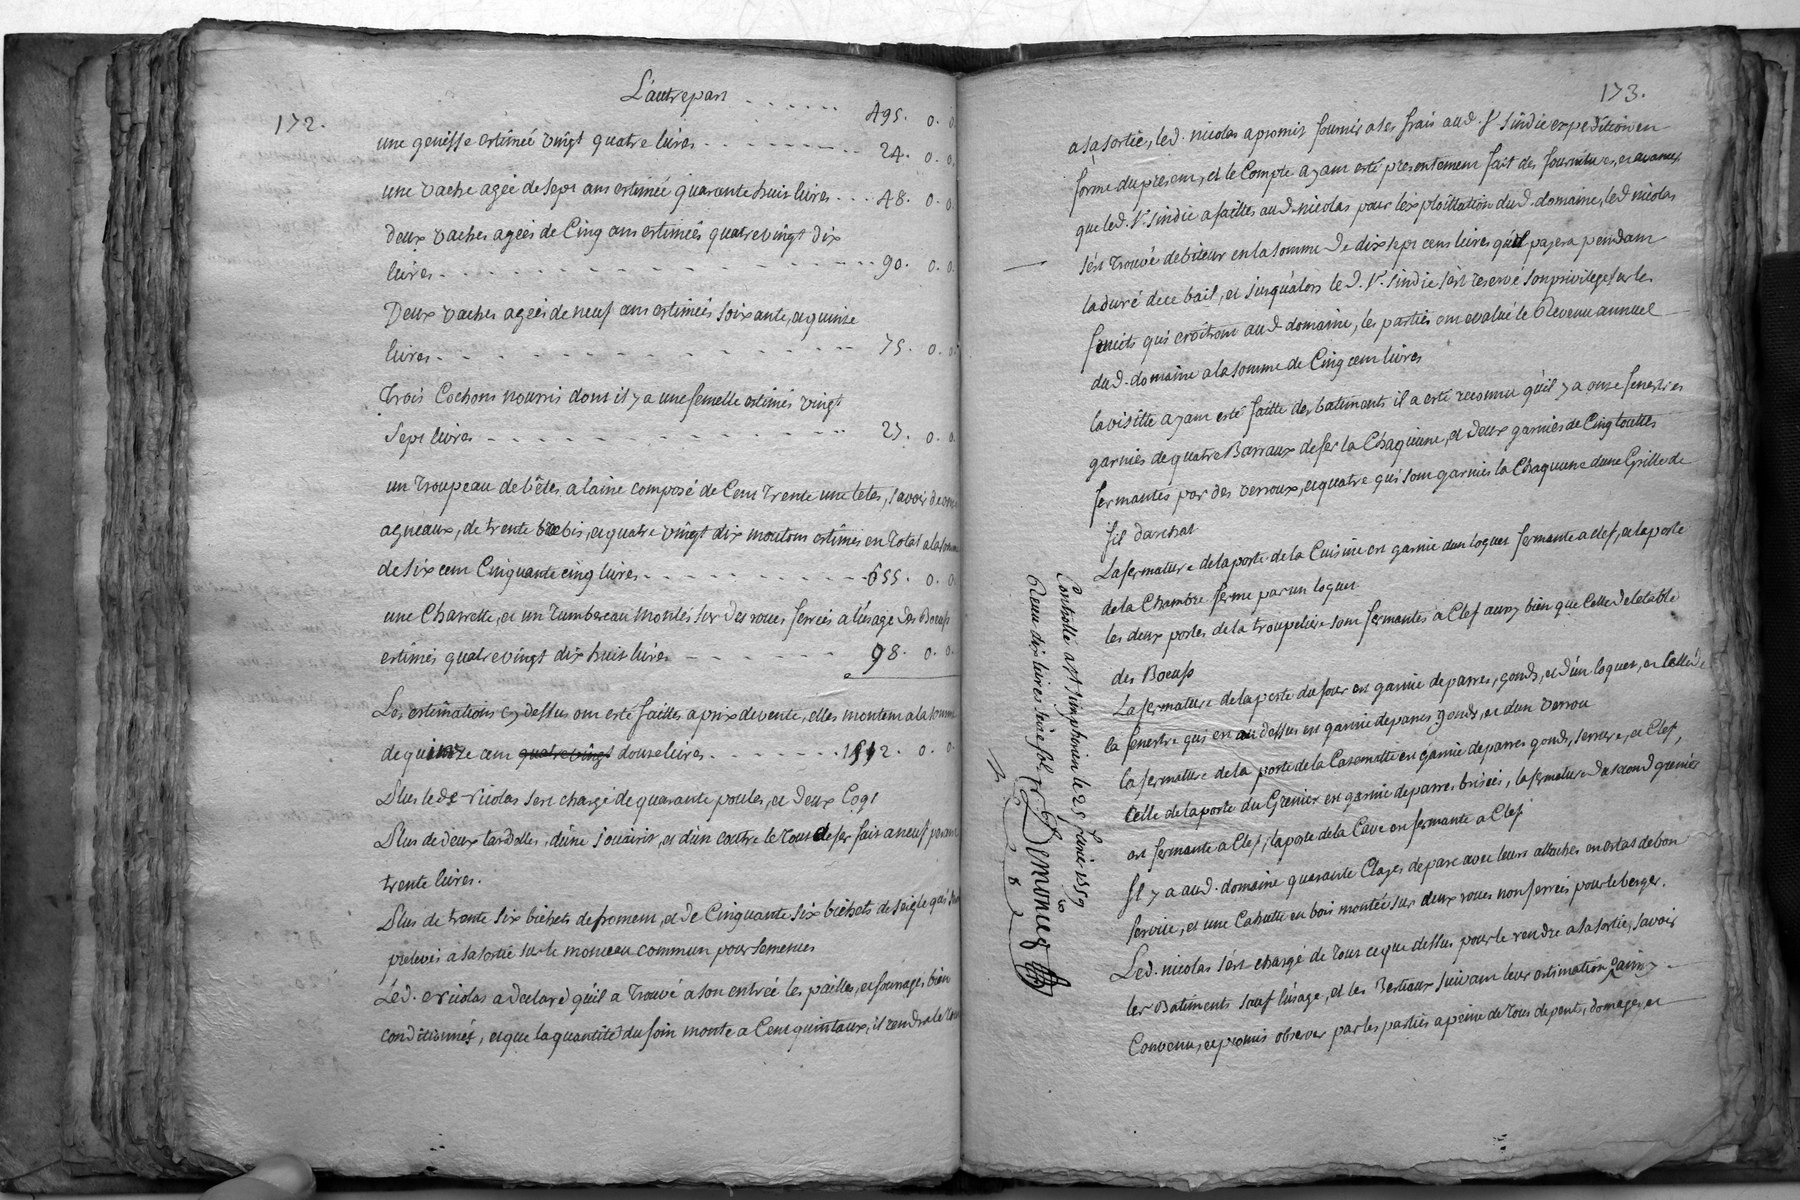 172.
L'autre part . . . . . . 495. 0. 0.
une genisse estimée vingt quatre livres . . . . . . . . . 24. 0. 0.
une vache agée de sept ans estimée quarante huit livres . . . 48. 0. 0.
deux vaches agées de Cinq ans estimées quatrevingt dix
livres . . . . . . . . . . . . 90. 0. 0.
Deux vaches agées de neuf ans estimées soixante, et quinze
livres . . . . . . . . . . . . 75. 0. 0.
Trois Cochons nourris dont il y a une femelle estimés vingt
Sept livres . . . . . . . . . . . . 27. 0. 0.
un Troupeau de bêtes a laine composé de Cent Trente une tetes, savoir de onze
agneaux, de trente brebis, et quatre vingt dix moutons estimés en Total a la somme
de six cent Cinquante cinq livres . . . . . . . . . . 655. 0. 0.
une Charrette, et un Tumbereau montés sur des roues ferrées a l'usage des Boeufs
estimés quatrevingt dix huit livres . . . . . . . 98. 0. 0.
Les estimations cy dessus ont esté faittes a prix de vente, elles montent a la somme
de quinze cent quatrevingt douze livres . . . . . . . 1512. 0. 0.
Plus led. Nicolas s'est chargé de quarante poules, et deux Coqs
Plus de deux tardolles, d'une souairis, et d'un coutre le tout de fer fait a neuf pesant
trente livres.
Plus de trente six bichets de froment, et de Cinquante six bichets de seigle qui
prelevés a sa sortie sur le monceau commun pour semences
Led. Nicolas a declaré qu'il a Trouvé a son entrée les pailles, et fourages bien
conditionnés, et que la quantité du foin monte a Cent quintaux, il rendra le tout
173.
a sa sortie, led. nicolas a promis fournir a ses frais aud. Sr. sindic expedition en
forme du present, et le Compte ayant esté presentement fait des fournitures, et avances
que led. Sr. sindic a faittes aud. nicolas pour l'exploittation dud. domaine, led. nicolas
s'est trouvé debiteur en la somme de dix sept cens livres qu'il payera pendant
la duré de ce bail, et jusqu'alors le d. Sr. sindic s'est reservé son privilege sur les
fruits qui croitront aud. domaine, les parties ont evalué le Revenu annuel
dud. domaine a la somme de Cinq cent livres
la visitte ayant esté faitte des batiments il a esté reconnu qu'il y a onze fenestres
garnies de quatre Barraux de fer la Chaquune, et deux garnies de Cinq
fermantes par des verroux, et quatre qui sont garnies la Chaquune d'une Grille de
fil d'archat
La fermature de la porte de la Cuisine est garnie d'un loquet fermante a clef, et la porte
de la Chambre ferme par un loquet
les deux portes de la troupeliere sont fermantes a Clef aussy bien que Celle de l'etable
des Boeufs
La fermature de la porte du four est garnie de parres, gonds, et d'un loquet, et Celle de
la fenestre qui est au dessus est garnie de parres gonds, et d'un verrou
la fermature de la porte de la Casematte est garnie de parres gonds, serrure, et Clef,
Celle de la porte du Grenier est garnie de parres brisées, la fermature du second grenier
est fermante a Clef, la porte de la Cave est fermante a Clef
Il y a aud. domaine quarante Clayes de parc avec leurs attaches en estat de bon
service, et une Cahutte en bois montée sur deux roues non ferrées pour le berger.
Led. nicolas s'est chargé de tout ce que dessus pour le rendre a sa sortie, savoir
les Batiments sauf l'usage, et les Bestiaux suivant leur estimation,
Convenu, et promis observer par les parties a peine de tous depents, domages, et
Controllé a St simphorien le 25 Juin 1759
Reçu dix livres seize sols
Demoniez